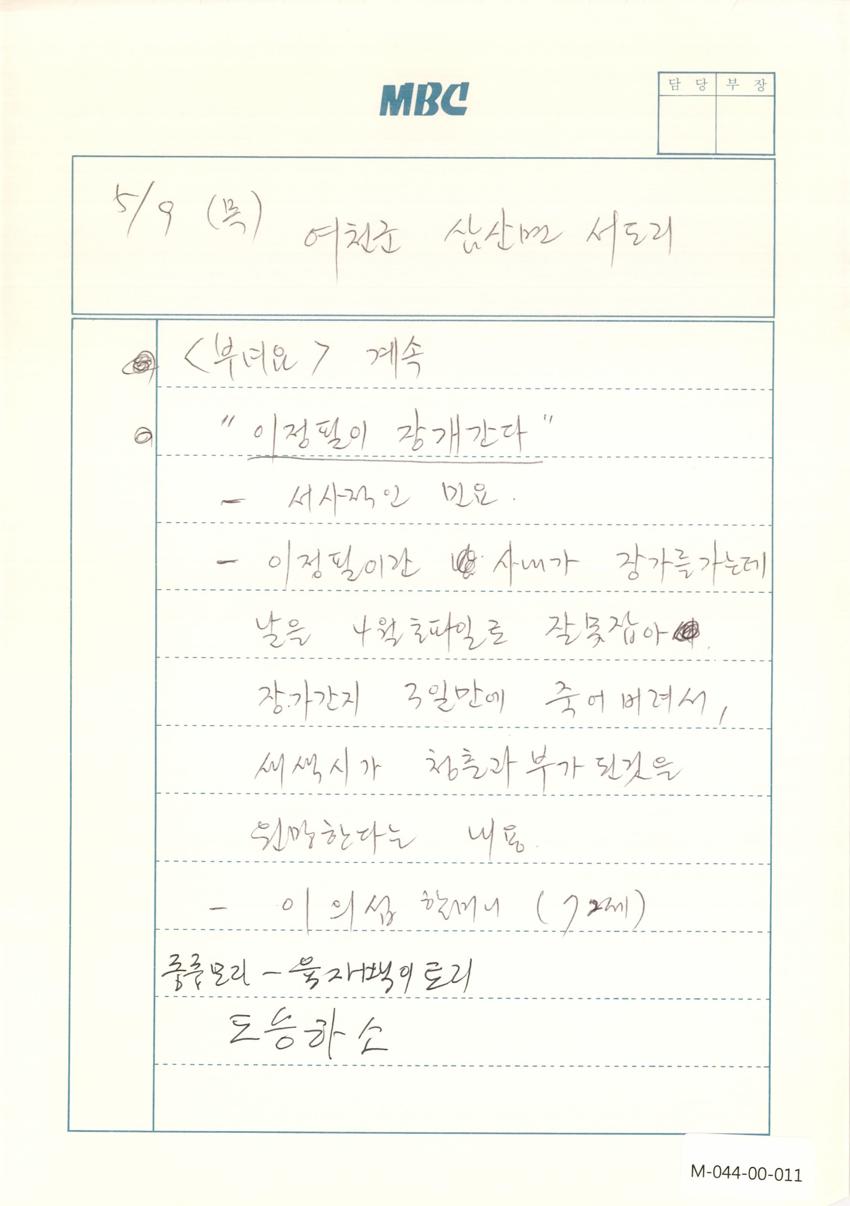 MBC
담 당 부 장
5/9 (목) 여천군 삼산면 서도리
<부녀요> 계속
"이정필이 장개간다"
- 서사적인 민요.
- 이정필이란 사내가 장가를가는데
날을 4월초파일로 잘못잡아
장가간지 3일만에 죽어버려서,
새색시가 청춘과부가 된것을
원망한다는 내용.
- 이의섭 할머니 (72세)
중중모리 - 육자백이토리
도승하소
M-044-00-011